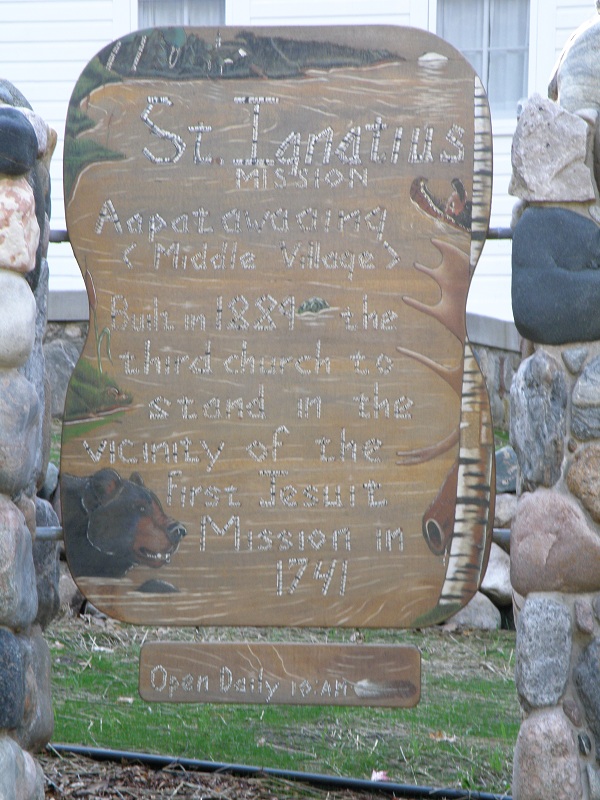 St. Ignatius
MISSION
Aapatawaaing
< Middle Village >
Built in 1889 the
third church to
stand in the
vicinity of the
first Jesuit
Mission in
1741
Open Daily 10:AM